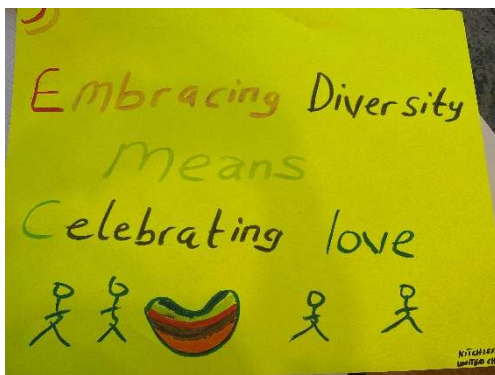 Embracing Diversity
means
Celebrating love
KITCHIES
UNITED CH